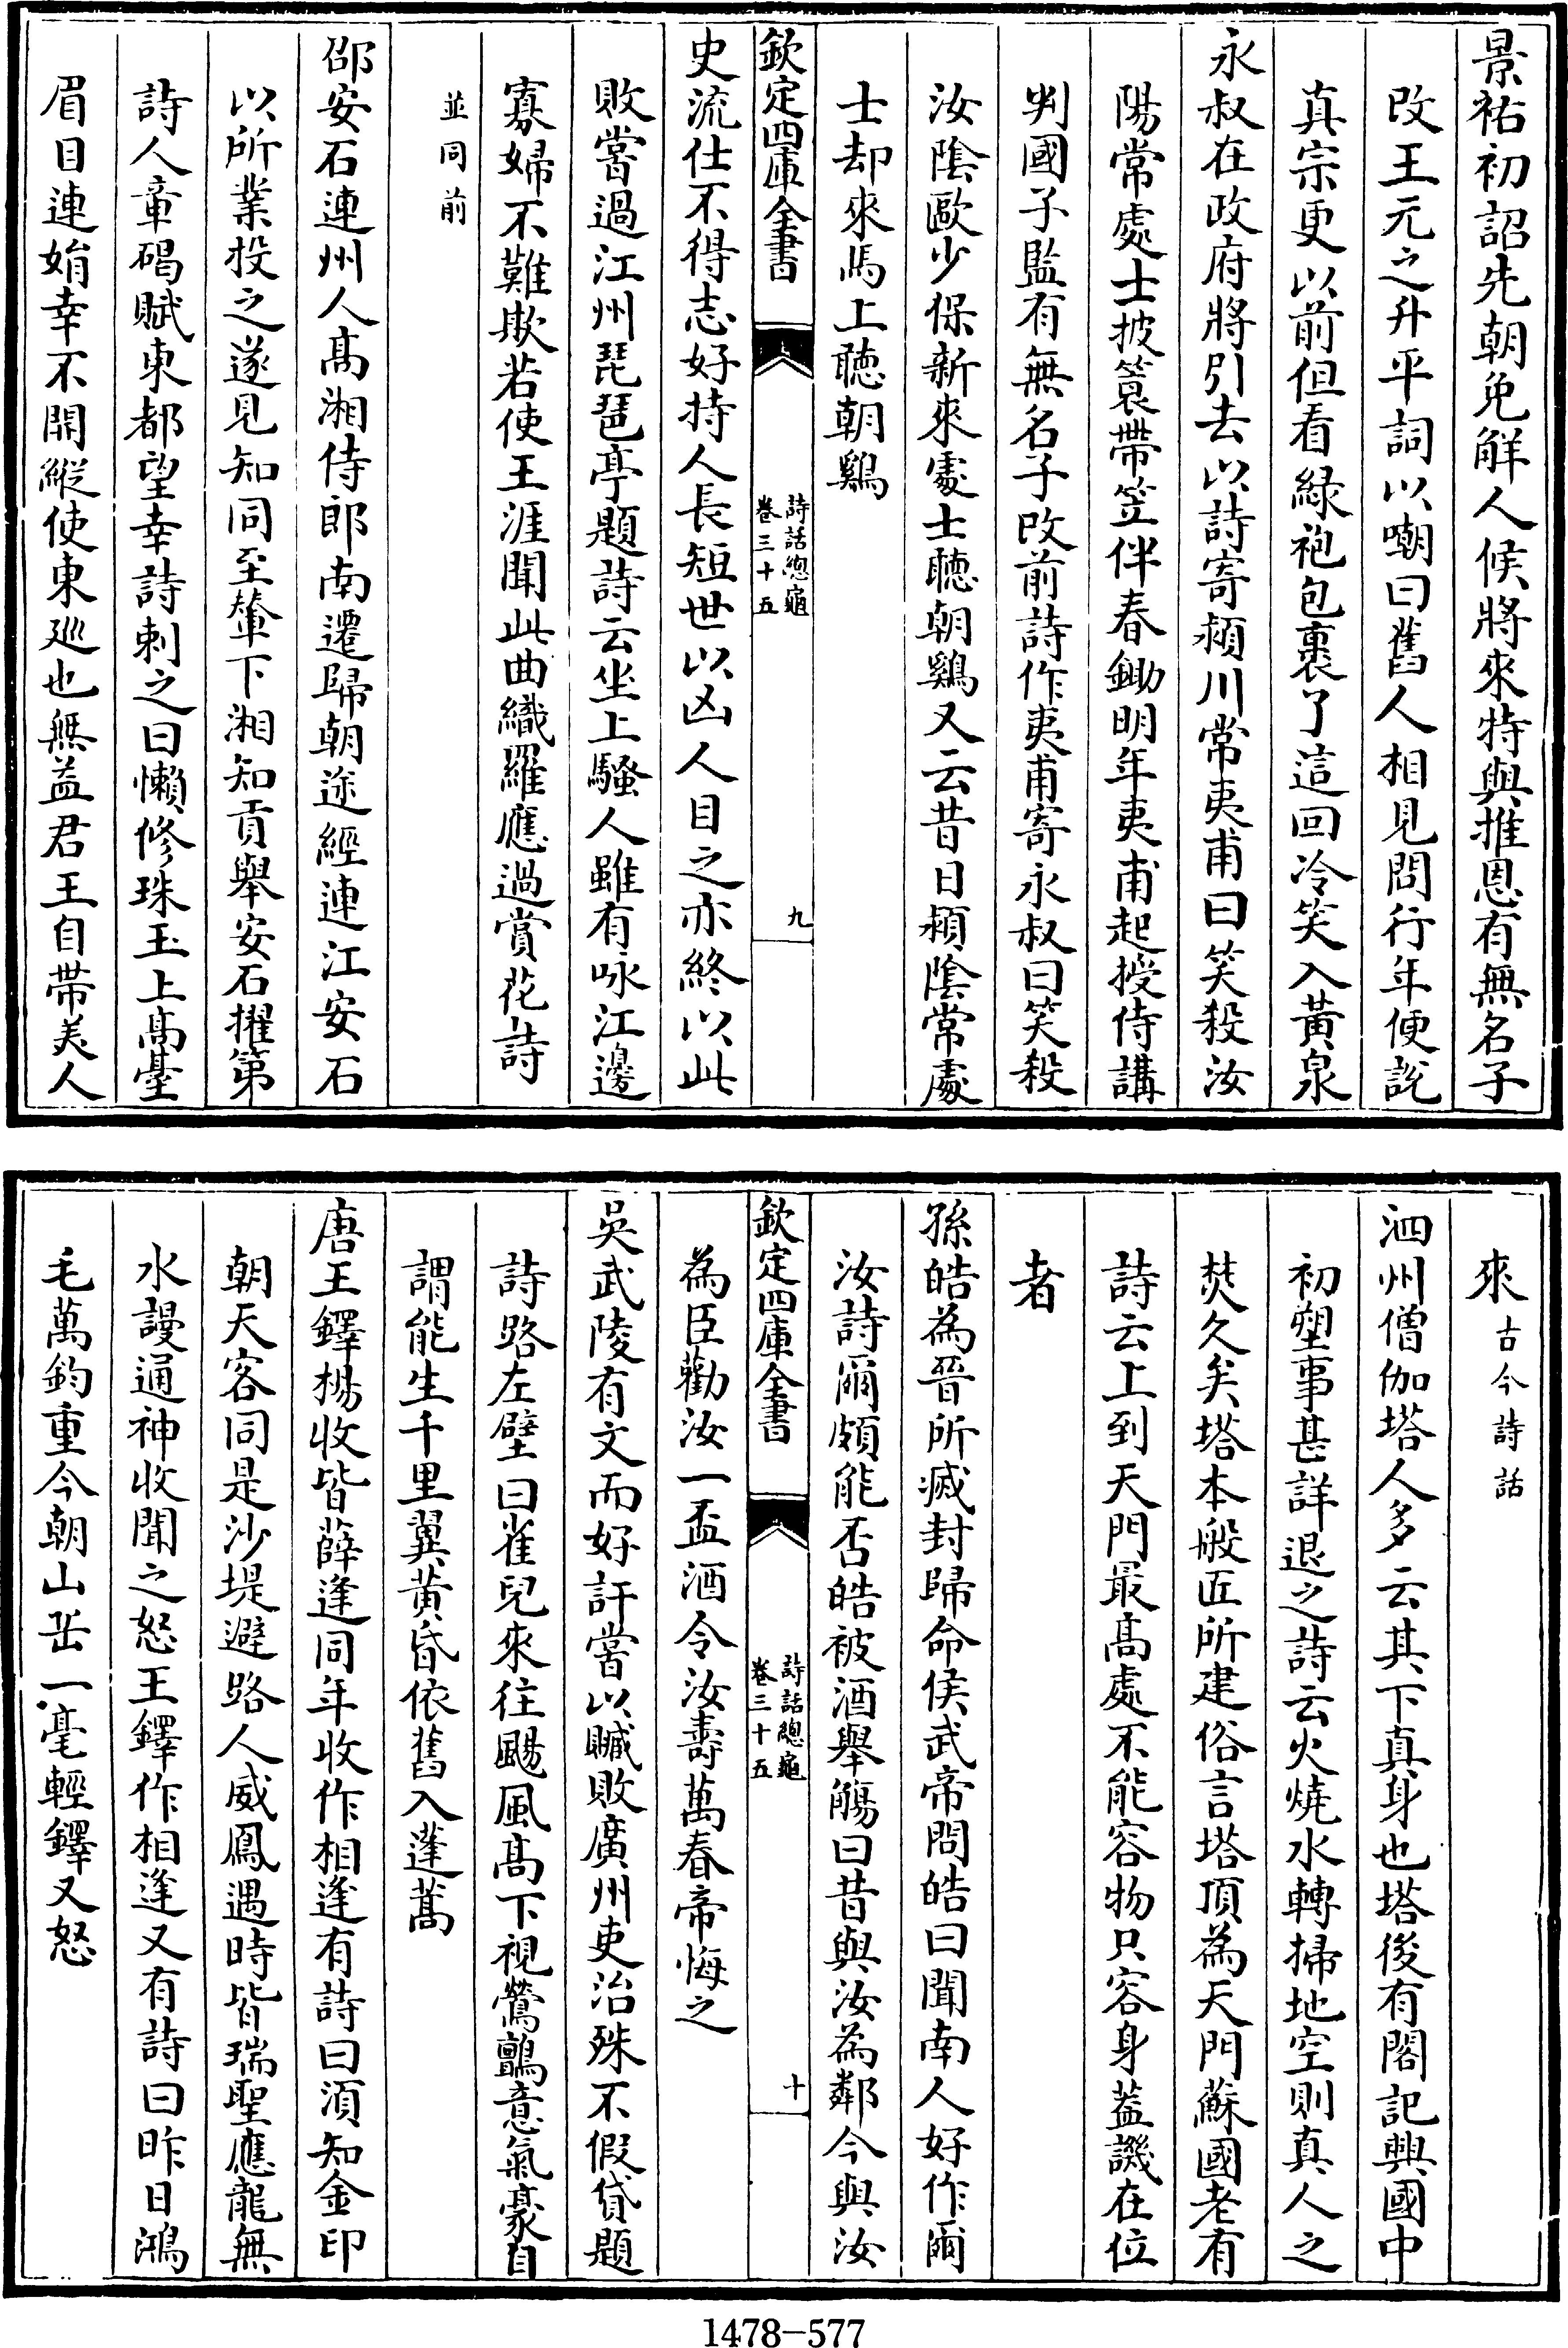 景祐初詔先朝免解人候將來特與推恩有無名子
改王元之升平詞以嘲曰舊人相見問行年便說
真宗更以前但看緑袍包裹了這回冷笑入黃泉
永叔在政府將引去以詩寄潁川常夷甫曰笑殺汝
陽常處士披簑帶笠伴春鋤明年夷甫起授侍講
判國子監有無名子改前詩作夷甫寄永叔曰笑殺
汝陰歐少保新來處士聽朝鷄又云昔日潁陰常處
士却來馬上聽朝鷄
欽定四庫全書
詩話總龜
卷三十五
九
史流仕不得志好持人長短世以凶人目之亦終以此
敗嘗過江州琵琶亭題詩云坐上騷人雖有咏江邊
寡婦不難欺若使王涯聞此曲織羅應過賞花詩
並同前
邵安石連州人髙湘侍郎南遷歸朝途經連江安石
以所業投之遂見知同至輦下湘知貢舉安石擢第
詩人章碣賦東都望幸詩刺之曰懶修珠玉上髙臺
眉目連娟幸不開縱使東廵也無益君王自帶美人
來古今詩話
泗州僧伽塔人多云其下真身也塔後有閣記興國中
初塑事甚詳退之詩云火燒水轉掃地空則真人之
焚久矣塔本般匠所建俗言塔頂為天門蘇國老有
詩云上到天門最髙處不能容物只容身葢譏在位
者
孫皓為晉所滅封歸命侯武帝問皓曰聞南人好作爾
汝詩爾頗能否皓被酒舉觴曰昔與汝為鄰今與汝
欽定四庫全書
詩話總龜
卷三十五
十
為臣勸汝一盃酒令汝壽萬春帝悔之
吳武陵有文而好訐嘗以贓敗廣州吏治殊不假貸題
詩路左壁曰雀兒來往颺風髙下視鶯鸇意氣豪自
謂能生千里翼黃昏依舊入蓬蒿
唐王鐸楊收皆薛逢同年收作相逢有詩曰須知金印
朝天客同是沙堤避路人威鳳遇時皆瑞聖應龍無
水謾通神收聞之怒王鐸作相逢又有詩曰昨日鴻
毛萬鈞重今朝山岳一毫輕鐸又怒
1478-577